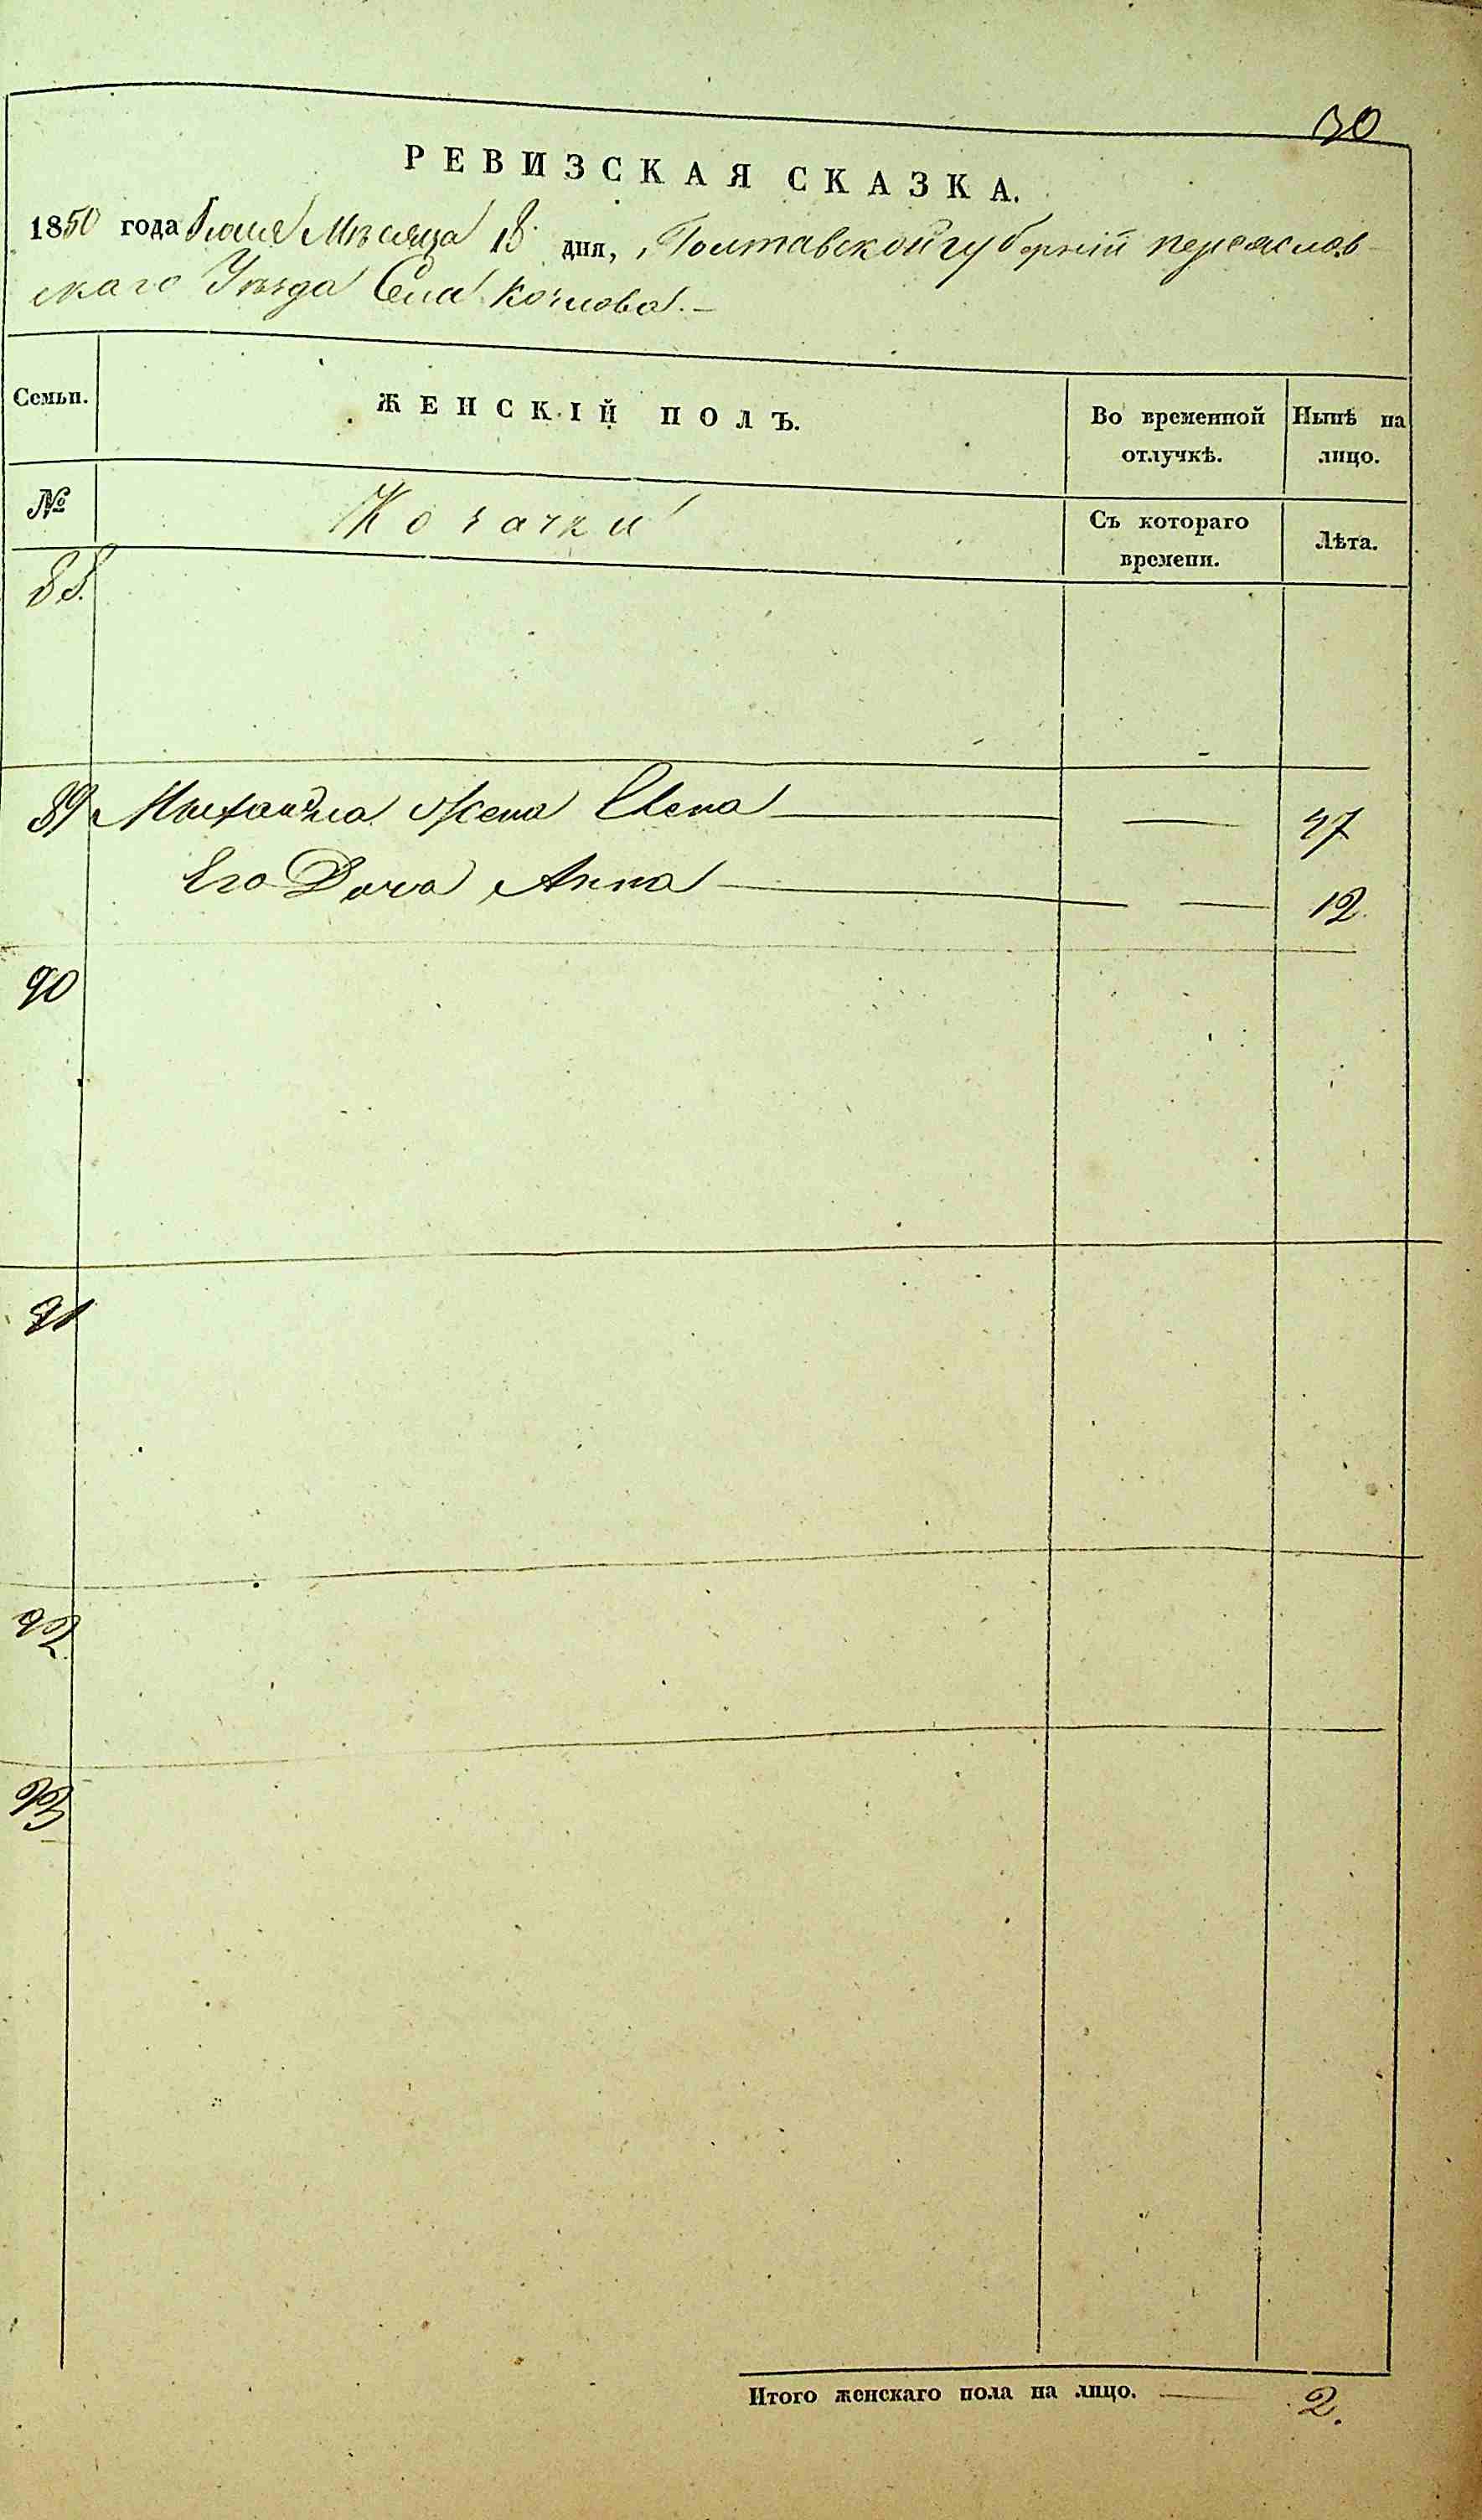 30
РЕВИЗСКАЯ СКАЗКА.
1850 года Іюля Мѣсяца 18 дня, Полтавской губерніи переяслав-
скаго Уѣзда Села Козлова.-
Семьи. ЖЕНСКІЙ ПОЛЪ. Во временной отлучкѣ. Нынѣ на лицо.
№ Козачки Съ котораго времени. Лѣта.
88.
89 Михаила Жена Елена — — 47
Его Дочь Анна — — 12
90
91
92
93
Итого женскаго пола на лицо. — 2.